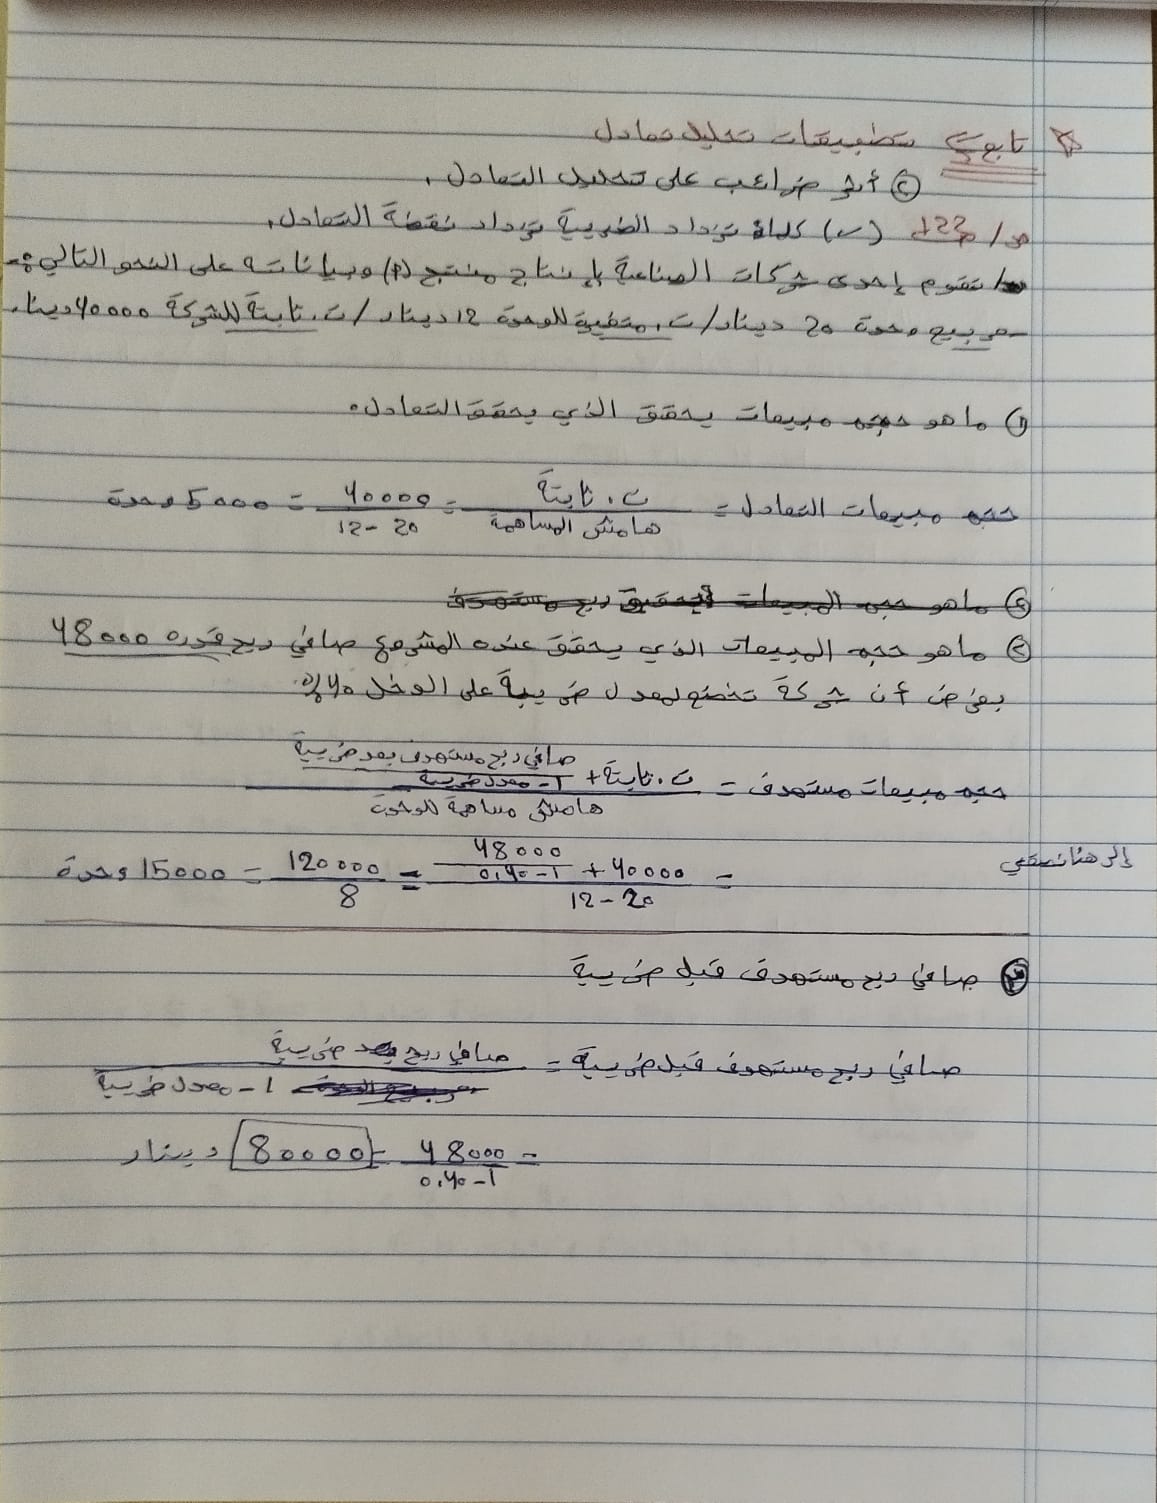 تابع تطبيقات تحليل تعادل
② أثر ضرائب على تحليل التعادل.
ص/ 22م (✓) كلما تزداد الضريبة تزداد نقطة التعادل.
تقوم إحدى شركات الصناعية بإنتاج منتج (م) وبياناته على النحو التالي:-
سعر بيع وحدة 20 دينار/ ت. متغيرة للوحدة 12 دينار/ ت. ثابتة للشركة 40000 دينار.
① ما هو حجم مبيعات يحقق الذي يحقق التعادل.
حجم مبيعات التعادل = ت. ثابتة / هامش المساهمة = 40000 / 20 - 12 = 5000 وحدة
② ما هو حجم المبيعات لتحقيق ربح مستهدف
② ما هو حجم المبيعات الذي يحقق عنده المشروع صافي ربح قدره 48000
بفرض أن شركة تخضع لمعدل ضريبة على الدخل 40%.
حجم مبيعات مستهدف = ت. ثابتة + صافي ربح مستهدف بعد ضريبة / 1 - معدل ضريبة / هامش مساهمة للوحدة
= 40000 + 48000 / 1 - 0,40 / 20 - 12 = 120000 / 8 = 15000 وحدة
إلى هنا نصفي
③ صافي ربح مستهدف قبل ضريبة
صافي ربح مستهدف قبل ضريبة = صافي ربح بعد ضريبة / 1 - معدل ضريبة
= 48000 / 1 - 0,40 = 80000 دينار